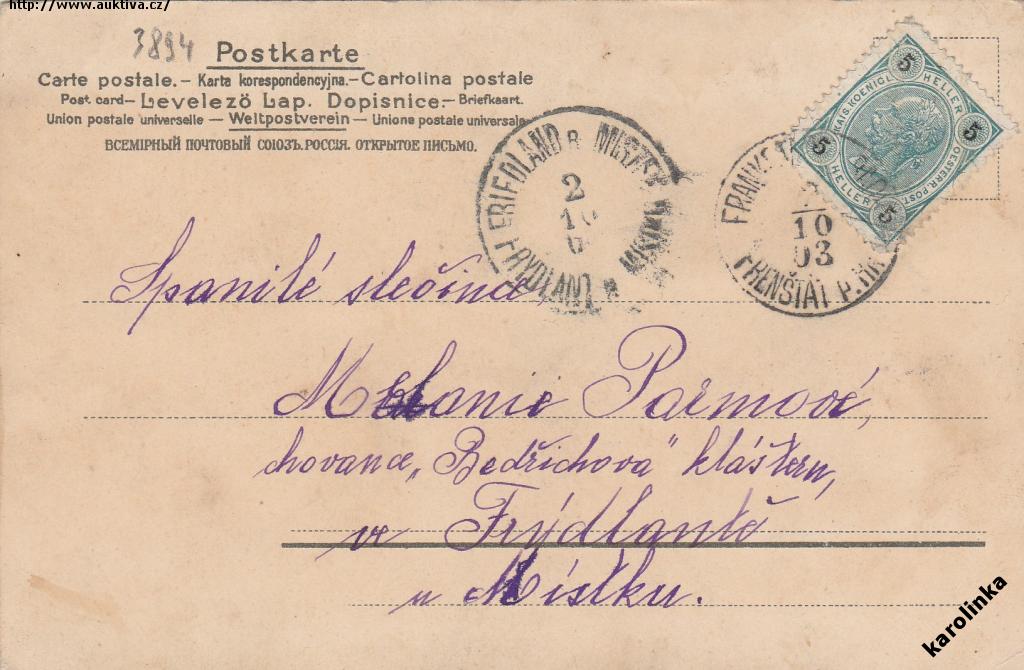 http://www.auktiva.cz/
3894
Postkarte
Carte postale. – Karta korespondencyjna. – Cartolina postale
Post card – Levelező Lap. Dopisnice. – Briefkaart.
Union postale universelle – Weltpostverein – Unione postale universale
ВСЕМІРНЫЙ ПОЧТОВЫЙ СОЮЗЪ. РОССІЯ. ОТКРЫТОЕ ПИСЬМО.
KAIS. KOENIGL. OESTERR. POST
5 HELLER 5 HELLER 5 5
FRIEDLAND B. MISTEK
2
10
FRÝDLANT
FRENŠTÁT P.
10
03
Spanilé slečině
Melanie Parmové,
chovance „Bedřichova" kláštera,
ve Frýdlantě
u Místku.
karolinka